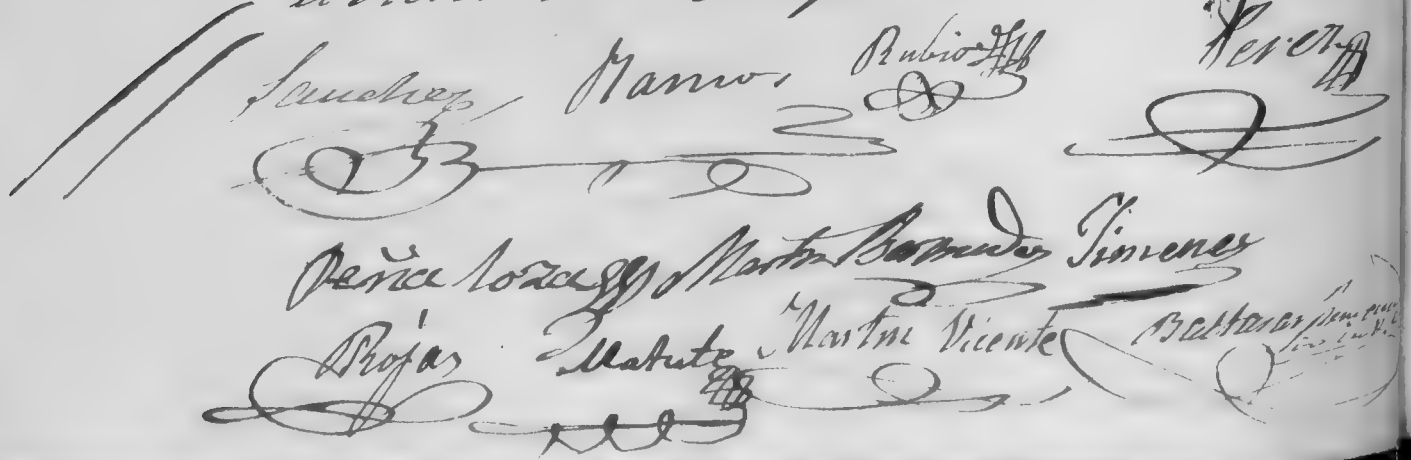 Sanchez Ramos Rubio Perez
Peña loza Martin Bermudez Jimenez
Rojas Matute Martin Vicente Baltasar